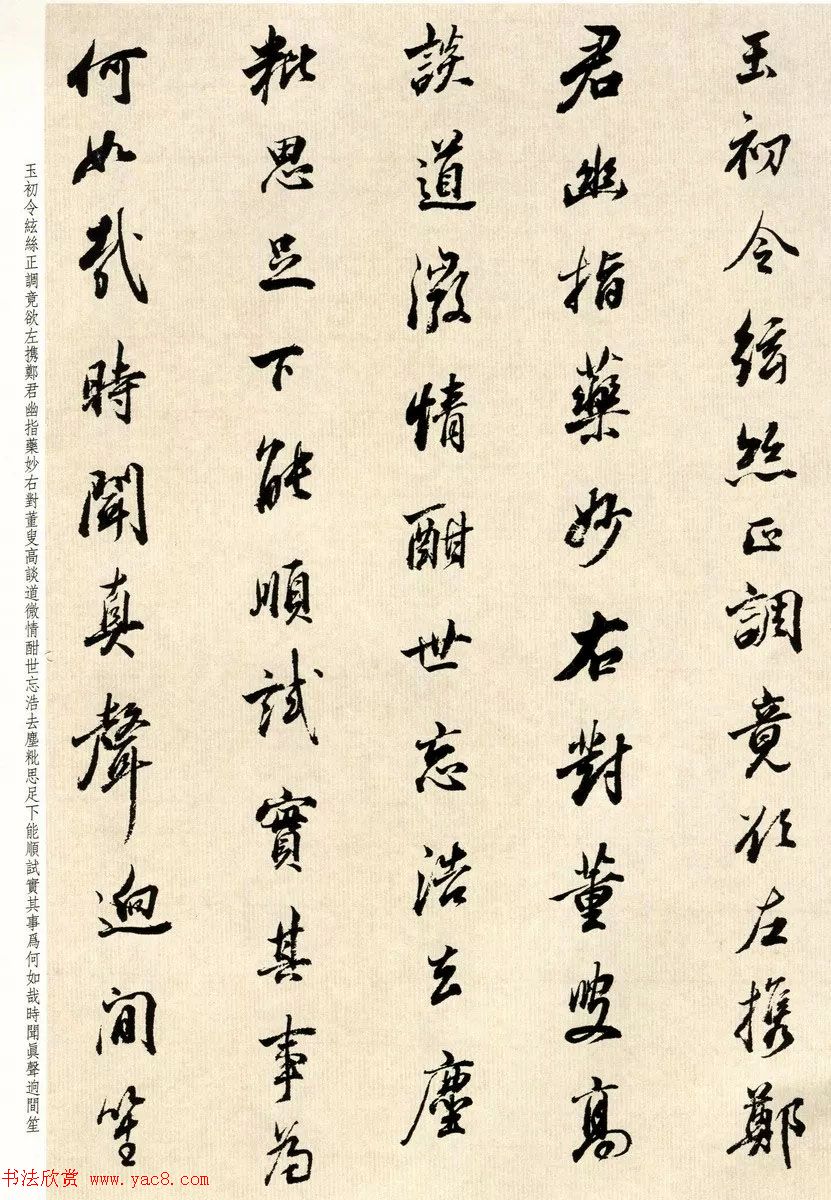 玉初令絃絲正調竟欲左携鄭
君幽指藥妙右對董叟高
談道微情酣世忘浩去塵
粃思足下能順試實其事為
何如哉時聞真聲逈間笙
玉初令絃絲正調竟欲左携鄭君幽指藥妙右對董叟高談道微情酣世忘浩去塵粃思足下能順試實其事爲何如哉時聞眞聲逈間笙
书法欣赏 www.yac8.com